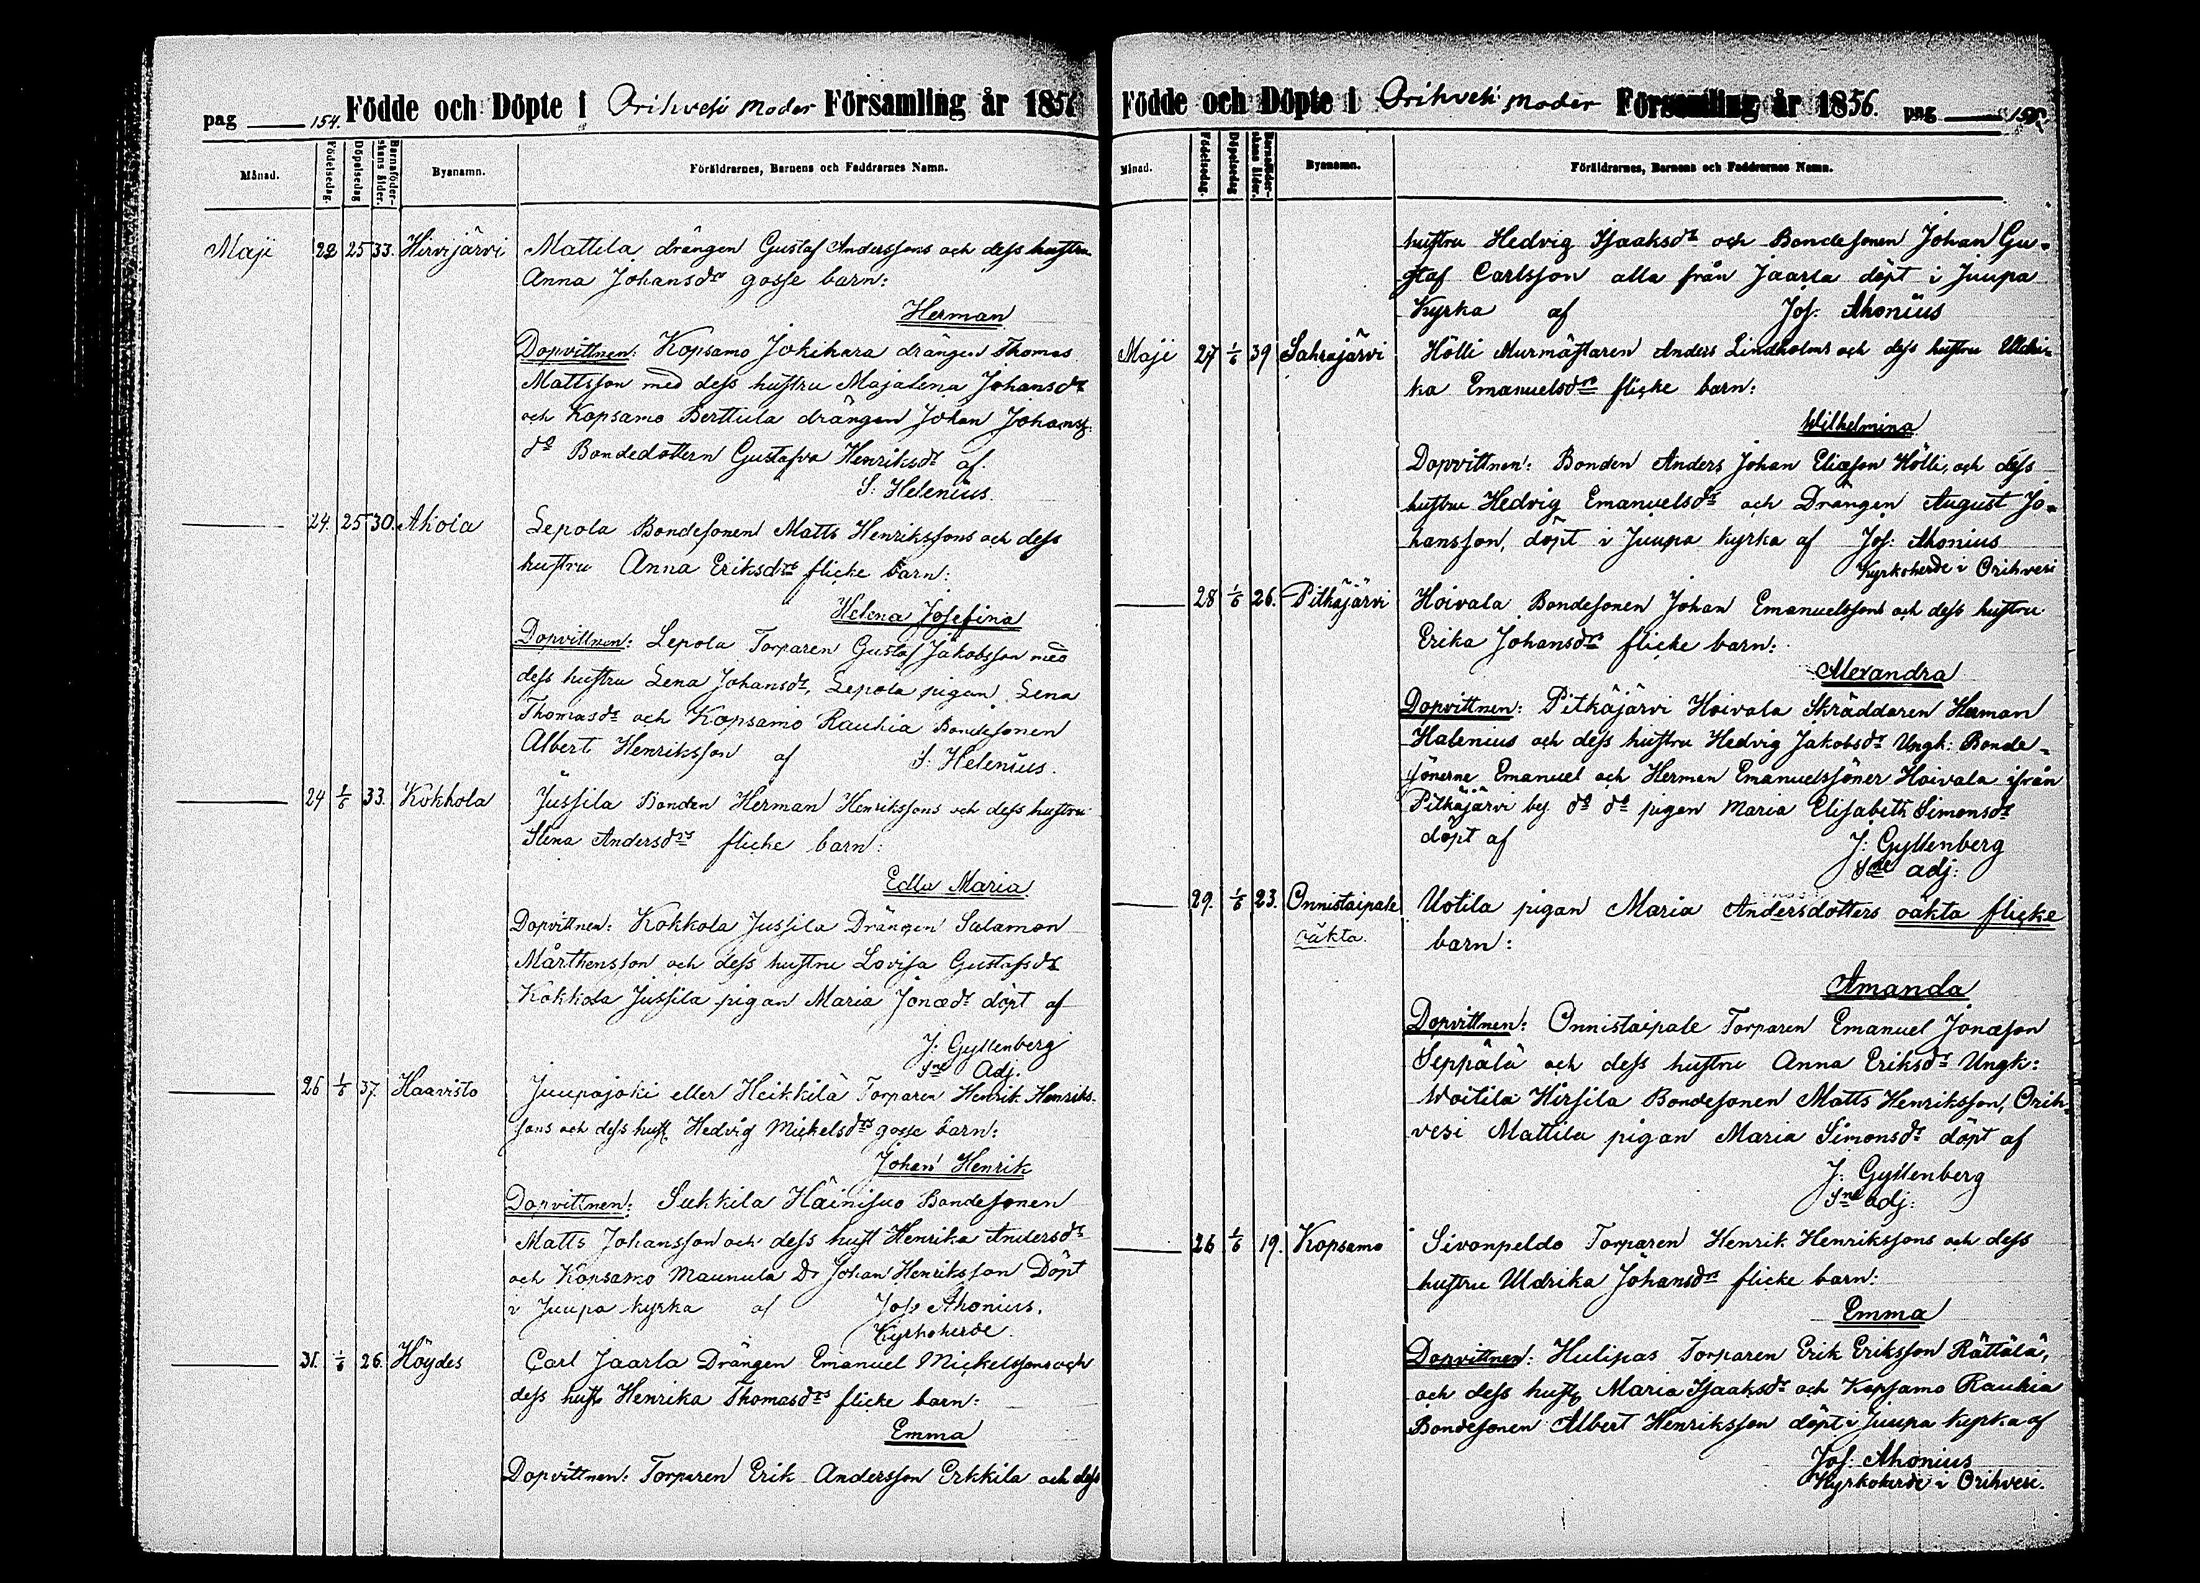 pag 154. Födde och Döpte i Orihvesi Moder Församling år 1856
Månad. Födelsedag. Döpelsedag Barnaföderskans ålder. Byanamn. Föräldrarnes, Barnens och Faddrarnes Namn.
Maji 22 25 33. Hirvijärvi Mattila drängen Gustaf Anderssons och dess hustru
Anna Johansdrs gosse barn:
Herman
Dopvittnen: Kopsamo Jokihara drängen Thomas
Mattsson med dess hustru Majalena Johansdr
och Kopsamo Berttula drängen Johan Johanss:
do Bondedottern Gustafva Henriksdr af.
S. Helenius.
24. 25 30. Ahola Lepola Bondesonen Matts Henrikssons och dess
hustru Anna Eriksdrs flicke barn:
Helena Josefina
Dopvittnen: Lepola Torparen Gustaf Jakobsson med
dess hustru Lena Johansdr, Lepola pigan Lena
Thomasdr och Kopsamo Rauhia Bondesonen
Albert Henriksson af S. Helenius.
24 1/6 33. Kokkola Jussila Bonden Herman Henrikssons och dess hustru
Stina Andersdrs flicke barn:
Edla Maria
Dopvittnen: Kokkola Jussila Drängen Salamon
Mårthensson och dess hustru Lovisa Gustafsdr
Kokkola Jussila pigan Maria Jonædr döpt af
J: Gyllenberg
Sne Adj.
26 1/6 37. Haavisto Juupajoki eller Heikkilä Torparen Henrik Henriks-
sons och dess hust Hedvig Mickelsdrs gosse barn:
Johan Henrik
Dopvittnen: Sukkila Häinisuo Bondesonen
Matts Johansson och dess hust Henrika Andersdr
och Kopsamo Maunula Dr Johan Henriksson Döpt
i Juupa kyrka af Jos: Ahonius.
Kyrkoherde.
31. 1/6 26. Höydes Carl Jaarla Drängen Emanuel Mickelssons och
dess hust Henrika Thomasdrs flicke barn:
Emma
Dopvittnen: Torparen Erik Andersson Erkkila och dess
Födde och Döpte i Orihvesi Moder Församling år 1856. pag
Månad. Födelsedag. Döpelsedag Barnaföderskans ålder. Byanamn. Föräldrarnes, Barnens och Faddrarnes Namn.
hustru Hedvig Isaaksdr och Bondesonen Johan Gu-
staf Carlsson alla från Jaarla döpt i Juupa
Kyrka af Jos: Ahonius
Maji 27 1/6 39 Sahrajärvi Hölli Murmästaren Anders Lindholms och dess hustru Uldri-
ka Emanuelsdrs flicke barn:
Wilhelmina
Dopvittnen: Bonden Anders Johan Eliæson Hölli, och dess
hustru Hedvig Emanuelsdr och Drängen August Jo-
hansson, döpt i Juupa kyrka af Jos: Ahonius
Kyrkoherde i Orihvesi
28 1/6 26. Pitkäjärvi Hoivala Bondesonen Johan Emanuelssons och dess hustru
Erika Johansdrs flicke barn:
Alexandra
Dopvittnen: Pitkäjärvi Hoivala Skräddaren Herman
Halenius och dess hustru Hedvig Jakobsdr Ungk: Bonde-
sönerne Emanuel och Herman Emanuelssöner Hoivala ifrån
Pitkäjärvi by do do pigan Maria Elisabeth Simonsdr
döpt af J: Gyllenberg
Sne adj:
29. 1/6 23. Onnistaipale Uotila pigan Maria Andersdotters oäkta flicke
oäkta. barn:
Amanda
Dopvittnen: Onnistaipale Torparen Emanuel Jonæson
Seppälä och dess hustru Anna Eriksdr Ungk:
Woitila Hirsila Bondesonen Matts Henriksson, Orih-
vesi Mattila pigan Maria Simonsdr döpt af
J: Gyllenberg
Sne adj:
26 1/6 19. Kopsamo Sivonpeldo Torparen Henrik Henrikssons och dess
hustru Uldrika Johansdrs flicke barn:
Emma
Dopvittnen: Hulipas Torparen Erik Eriksson Rättälä,
och dess hust Maria Isaaksdr och Kopsamo Rauhia
Bondesonen Albert Henriksson döpt i Juupa kyrka af
Jos: Ahonius
Kyrkoherde i Orihvesi.